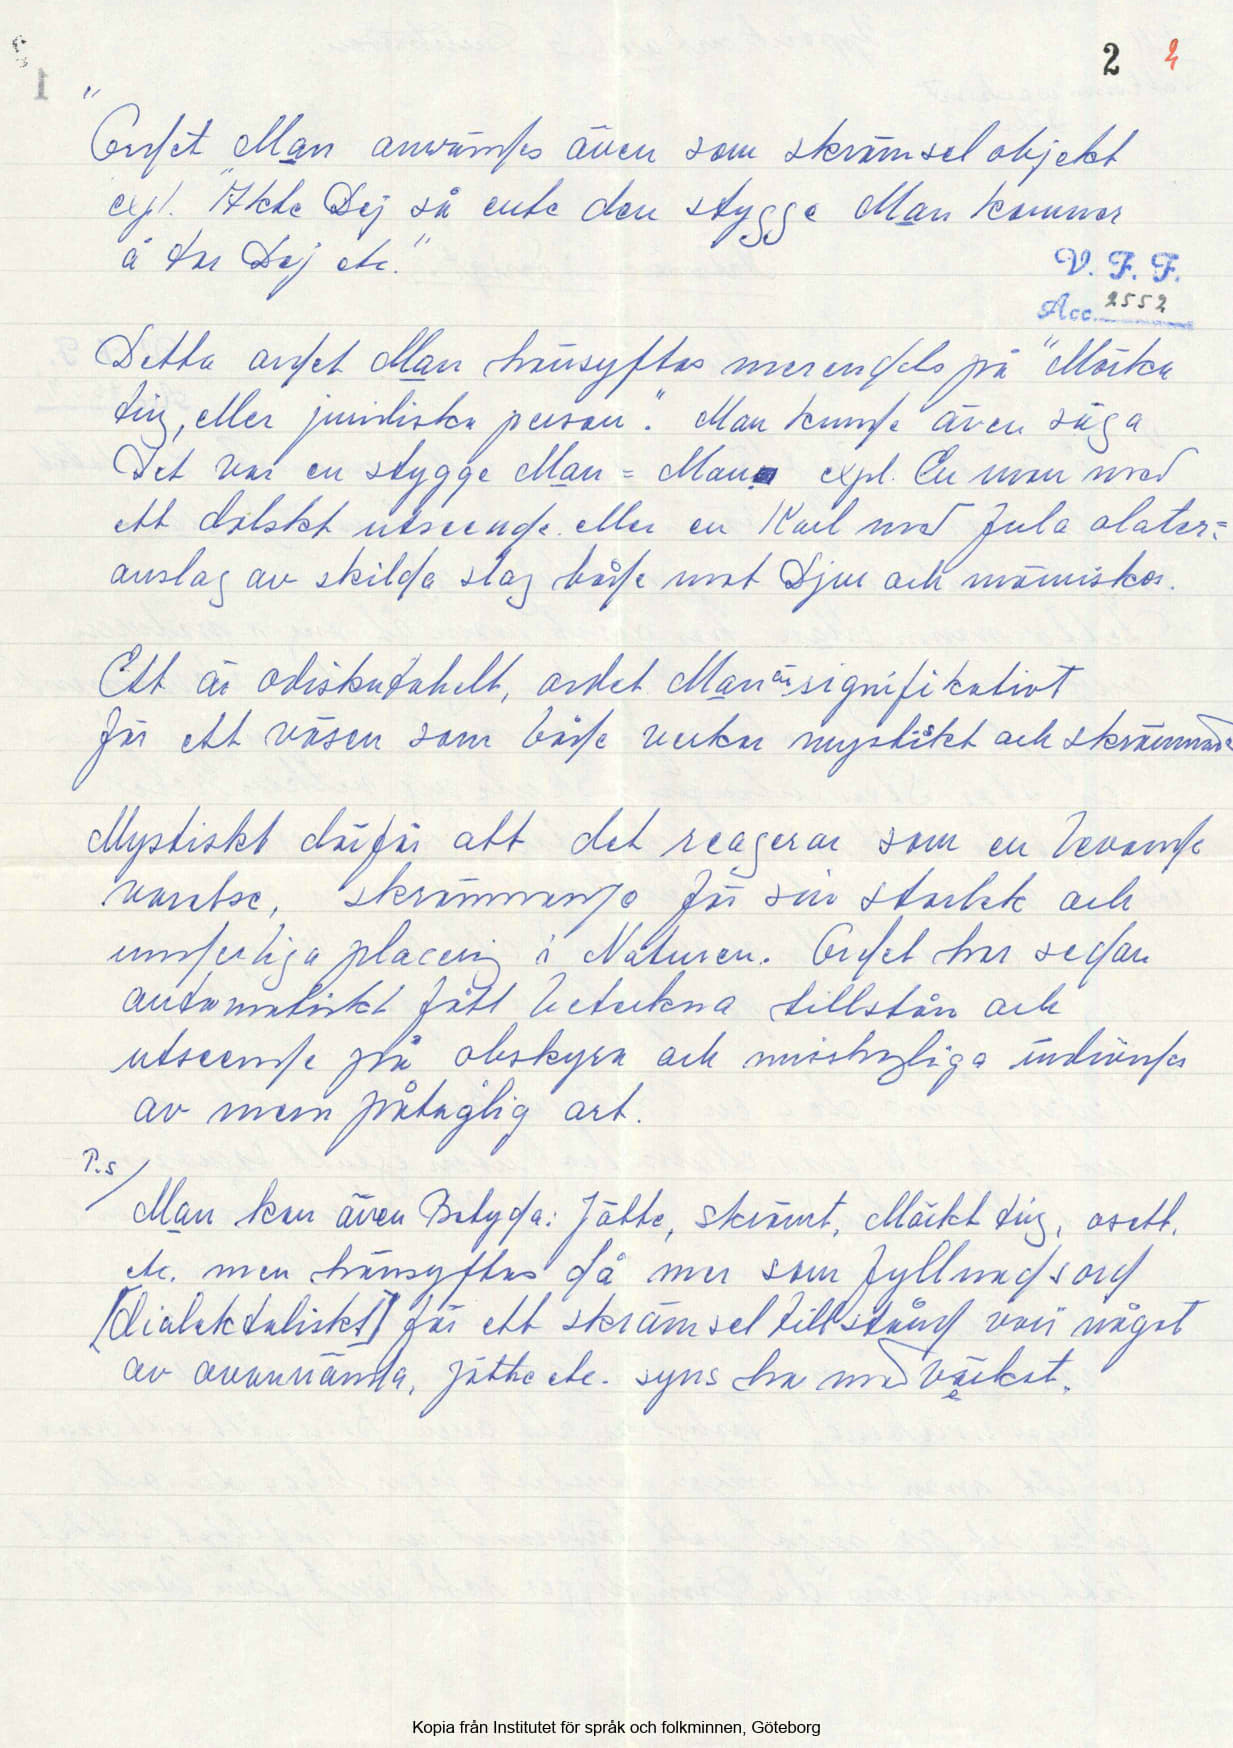 2 2
"
Ordet Man användes även som skrämselobjekt
expl. "Akta Dej så ente den stygge Man kommer
å tar Dej etc."
V. F. F.
Acc. 2552
Detta ordet Man hänsyftas merendels på "Mörka
ting, eller juridiska person". Man kunde även säga
Det var en stygge Man = Man expl. En man med
ett dolskt utseende eller en Karl med fula olater=
anslag av skilda slag både mot Djur och människor.
Ett är odiskutabelt, ordet Man är signifikativt
för ett väsen som både verkar mystiskt och skrämmande
Mystiskt därför att det reagerar som en levande
varelse, skrämmande för sin storlek och
underliga placering i Naturen. Ordet har sedan
automatiskt fått beteckna tillstånd och
utseende på obskyra och misshagliga individer
av mera påtaglig art.
P.s
Man kan även Betyda: Jätte, skrämt, Mörkt ting, osett.
etc. men hänsyftas då mer som fyllnadsord
[dialektaliskt] för ett skrämseltillstånd vari något
av ovannämda, jätte etc. syns ha medvärkat.
Kopia från Institutet för språk och folkminnen, Göteborg